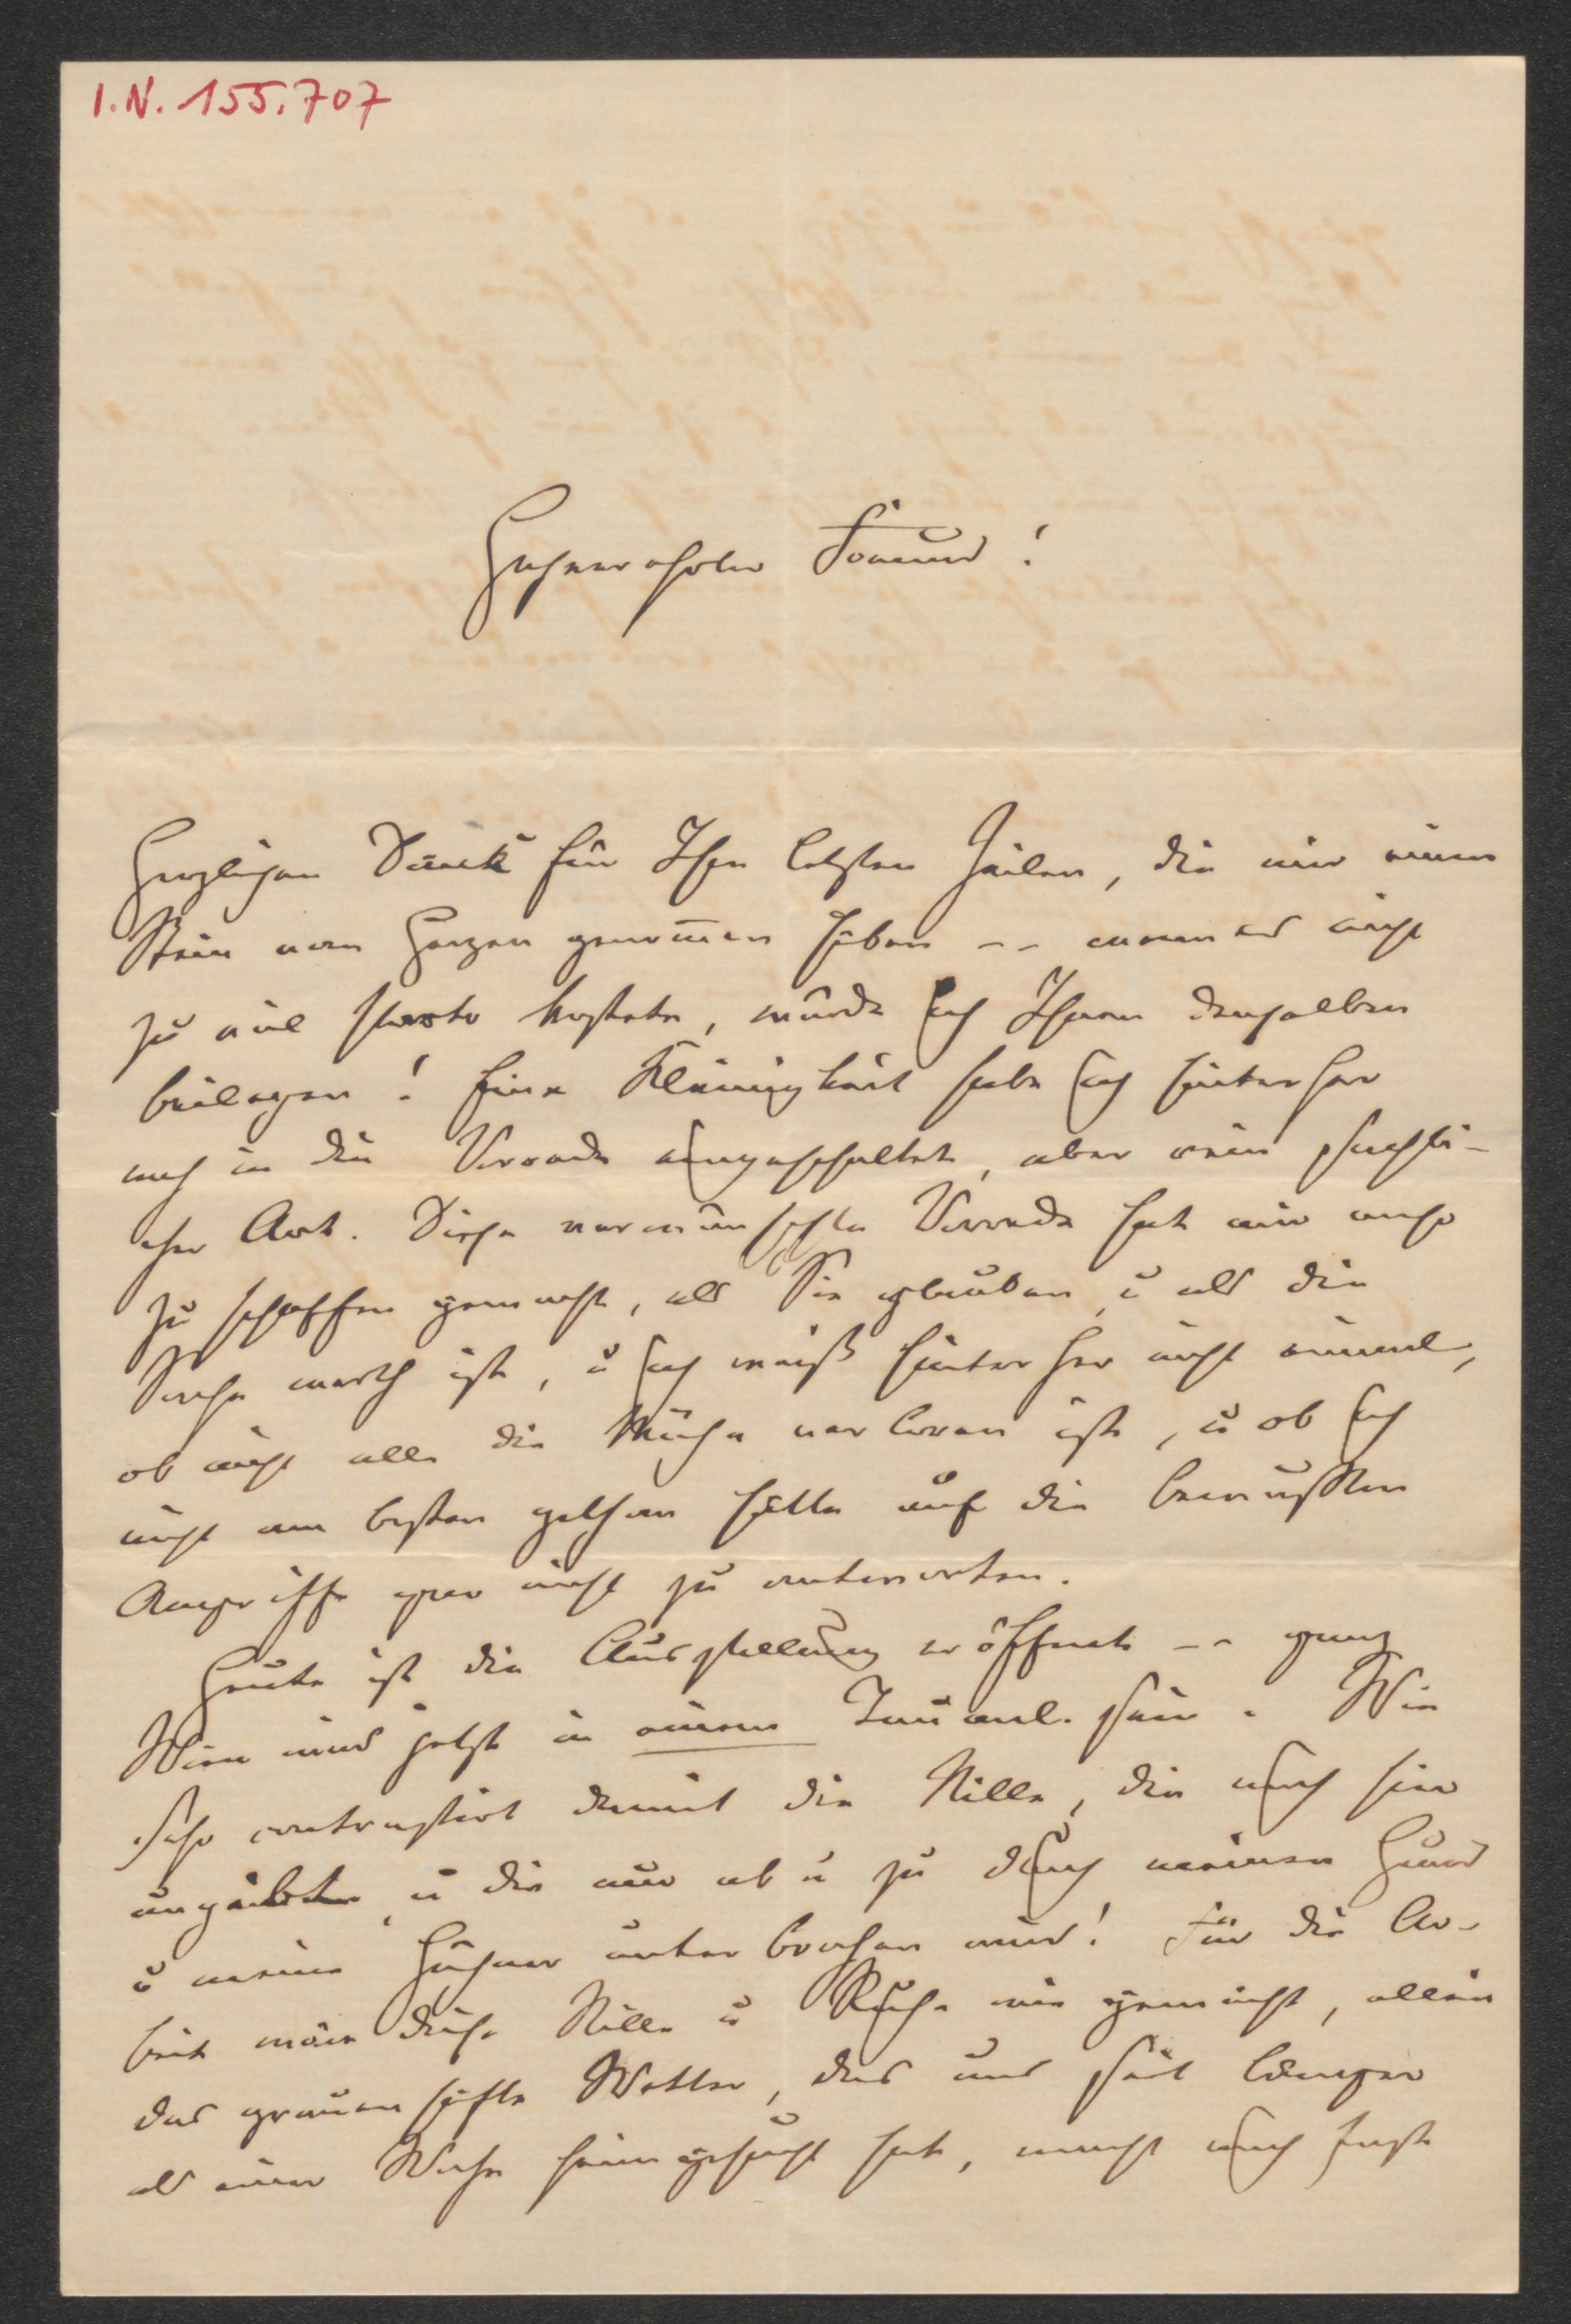 I.N. 155.707
Hochverehrter Freund!
Herzlichen Dank für Ihre letzten Zeilen, die mir einen
Stein vom Herzen genommen haben -- wenn es nicht
zu viel Porto kostete, würde ich Ihnen denselben
beilegen! Eine Kleinigkeit habe ich hinterher
noch in die Vorrede eingeschaltet, aber rein sachli-
cher Art. Diese verwünschte Vorrede hat mir mehr
zu schaffen gemacht, als Sie glauben, u als die
Sache werth ist, u ich weiß hinterher nicht einmal,
ob nicht alle die Mühe verloren ist, u ob ich
nicht am besten gethan hätte auf die bewußten
Angriffe gar nicht zu antworten.
Heute ist die Ausstellung eröffnet -- ganz
Wien wird jetzt in einem Taumel sein. Wie
sehr contrastirt damit die Stille, die mich hier
umgiebt, u die nur ab u zu durch meinen Hund
u meine Hühner unterbrochen wird! Für die Ar-
beit wäre diese Stille u Ruhe wie gemacht, allein
das grauenhafte Wetter, das uns seit länger
als einer Woche heimgesucht hat, macht mich fast